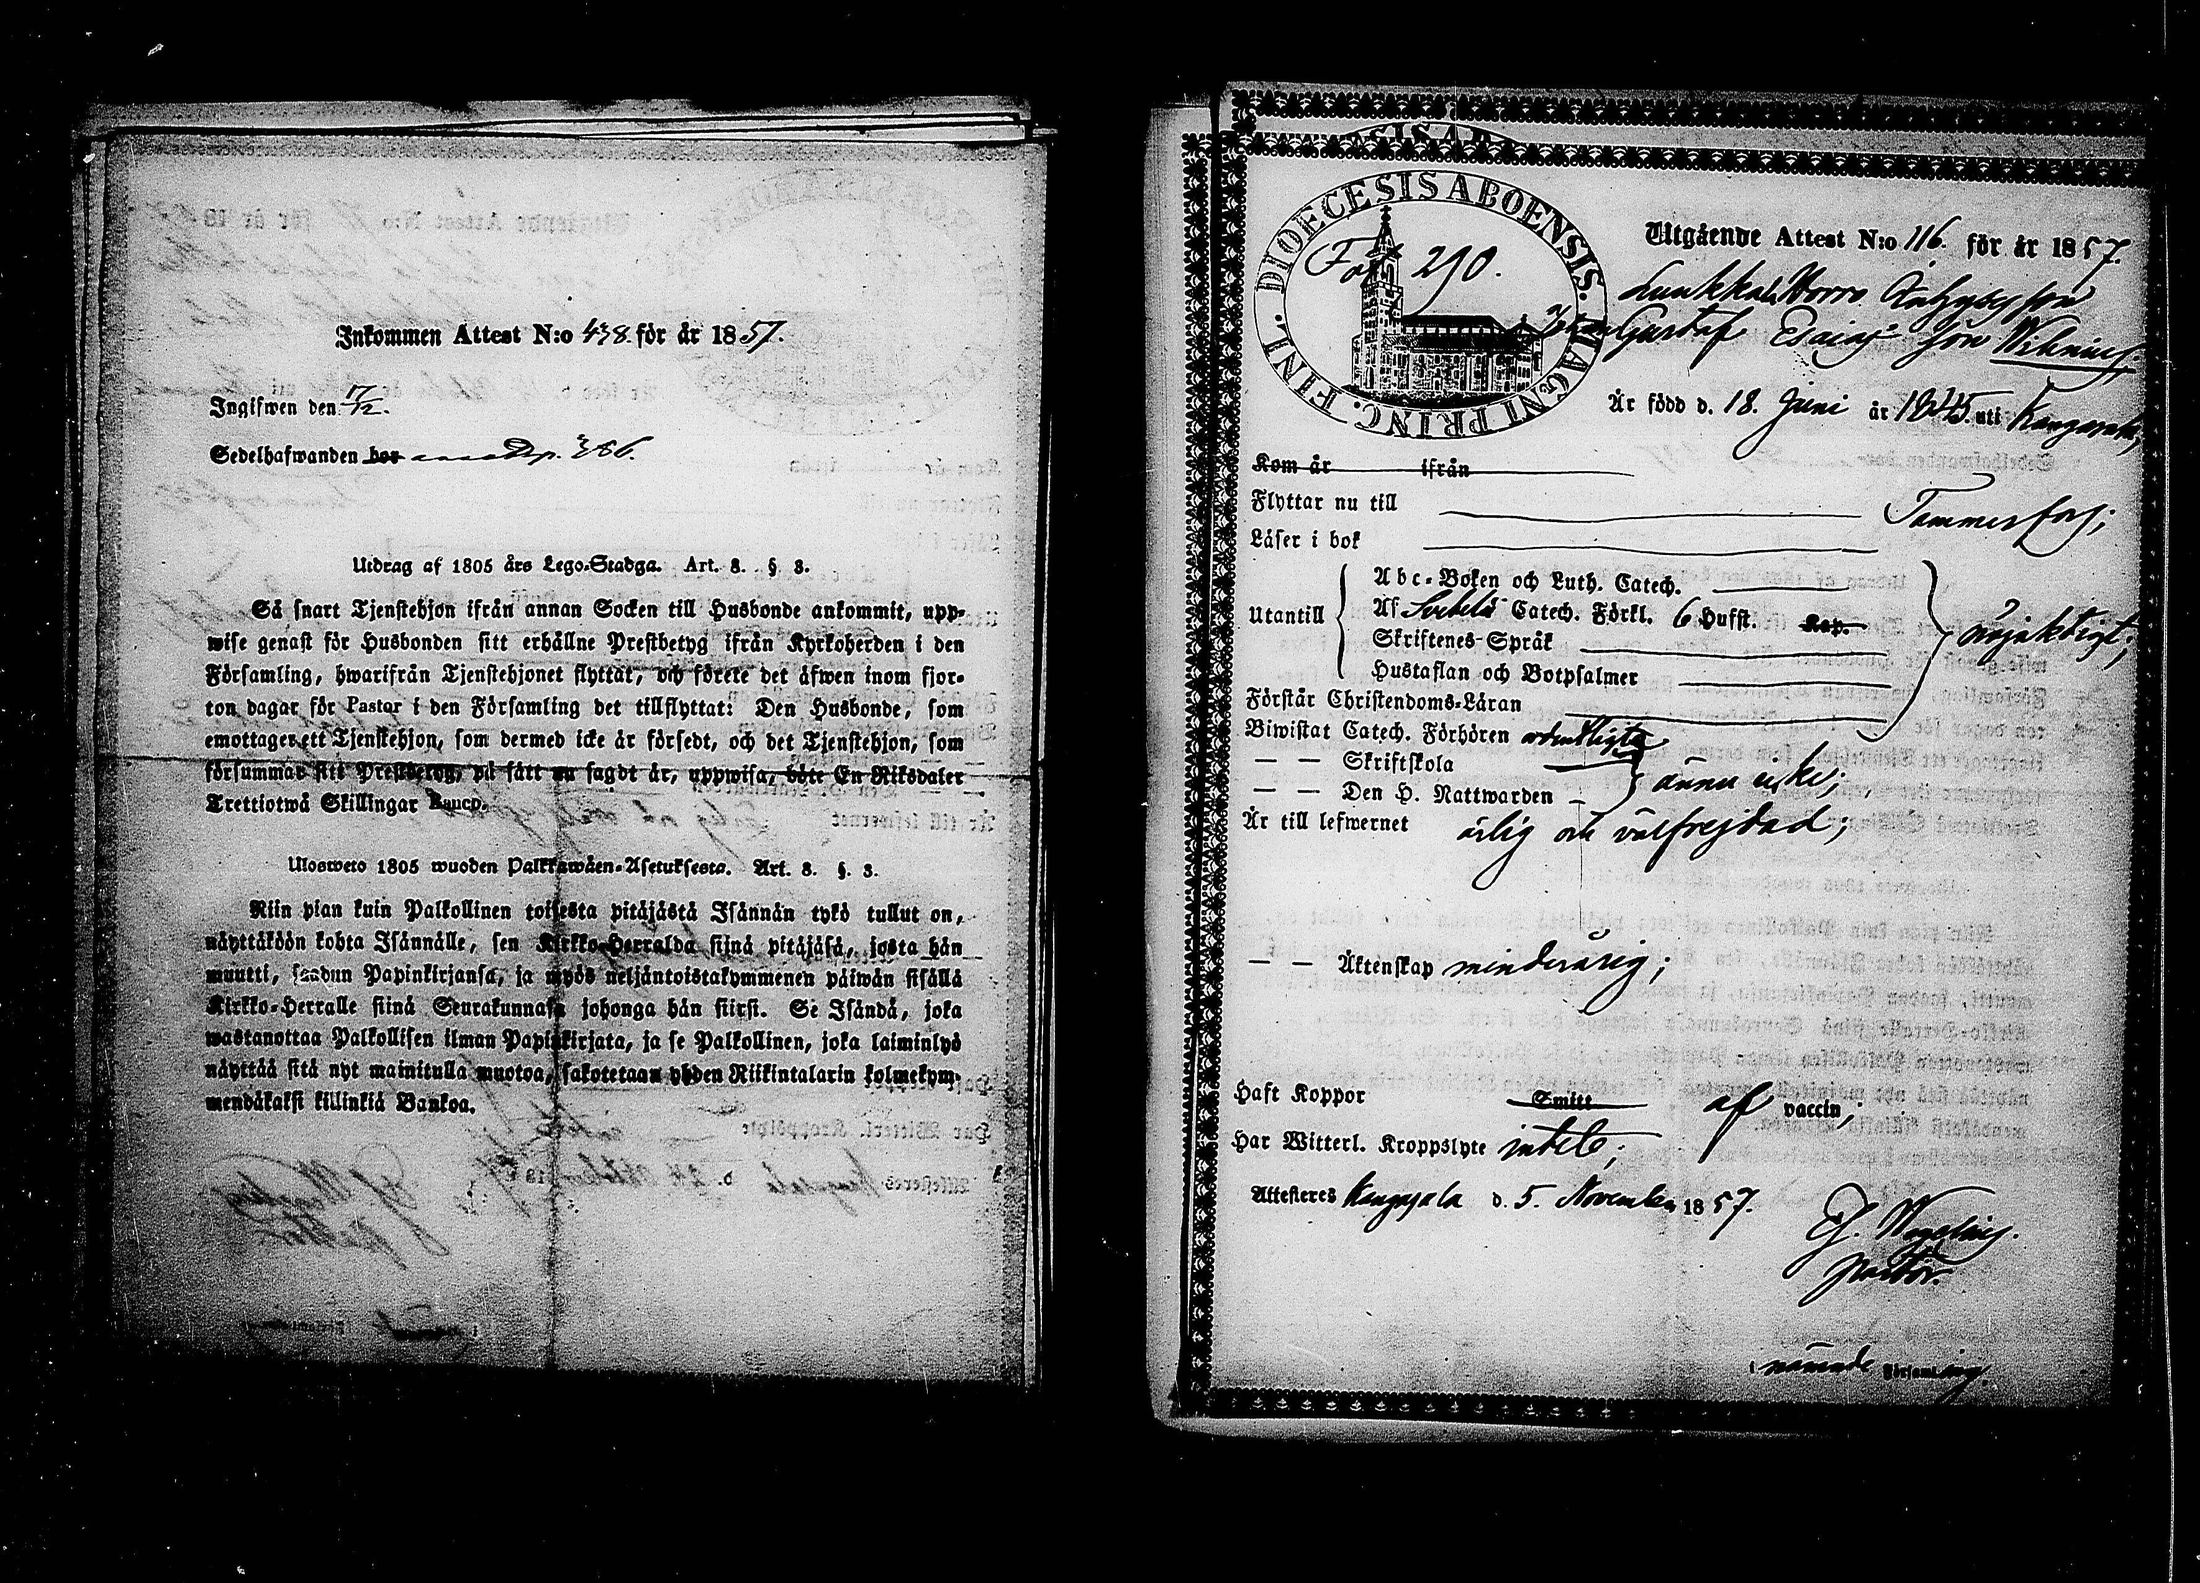 Inkommen Attest N:o 438. för år 1857.
Ingifwen den 17/12.
Sedelhafwanden bor 386.
Utdrag af 1805 års Lego-Stadga. Art. 8. §. 3.
Så snart Tjenstehjon ifrån annan Socken till Husbonde ankommit, upp-
wise genast för Husbonden sitt erhållne Prestbetyg ifrån Kyrkoherden i den
Församling, hwarifrån Tjenstehjonet flyttat, och förete det äfwen inom fjor-
ton dagar för Pastor i den Församling det tillflyttat: Den Husbonde, som
emottager ett Tjenstehjon, som dermed icke är försedt, och det Tjenstehjon, som
försummar sitt Prestbetyg, på sätt nu sagdt är, uppwisa, böte En Riksdaler
Trettiotwå Skillingar Banco.
Ulosweto 1805 wuoden Palkkawäen-Asetuksesta. Art. 8. §. 3.
Niin pian kuin Palkollinen toisesta pitäjästä Isännän tykö tullut on,
näyttäköön kohta Isännälle, sen Kirkko-Herralda siinä pitäjäsä, josta hän
muutti, saadun Papinkirjansa, ja myös neljäntoistakymmenen päiwän sisällä
Kirkko-Herralle siinä Seurakunnasa johonga hän siirsi. Se Isändä, joka
wastanottaa Palkollisen ilman Papinkirjata, ja se Palkollinen, joka laiminlyö
näyttää sitä nyt mainitulla muotoa, sakotetaan yhden Riikintalarin kolmekym-
mendäkaksi killinkiä Bankoa.
DIOECESIS ABOENSIS. MAGNI PRINC. FINL.
Fol. 290.
Utgående Attest N:o 116. för år 1857.
Gustaf Esaiæ son
Är född d. 18. Juni år 1845. uti Kangasala;
Kom år ifrån
Flyttar nu till Tammerfors;
Läser i bok
Utantill
Abc-Boken och Luth. Catech.
Af Svebelii Catech. Förkl. 6 Hufst. Kap.
Skriftenes-Språk
Hustaflan och Botpsalmer
nöjaktigt;
Förstår Christendoms-Läran
Biwistat Catech. Förhören ordentligt;
— — Skriftskola
— — Den H. Nattwarden
ännu icke;
Är till lefwernet ärlig och välfrejdad;
— — Äktenskap minderårig;
Haft Koppor Smitt af vaccin;
Har Witterl. Kroppslyte intet;
Attesteres Kangasala d. 5. November 1857.
Pastor.
i nämnde Församling.